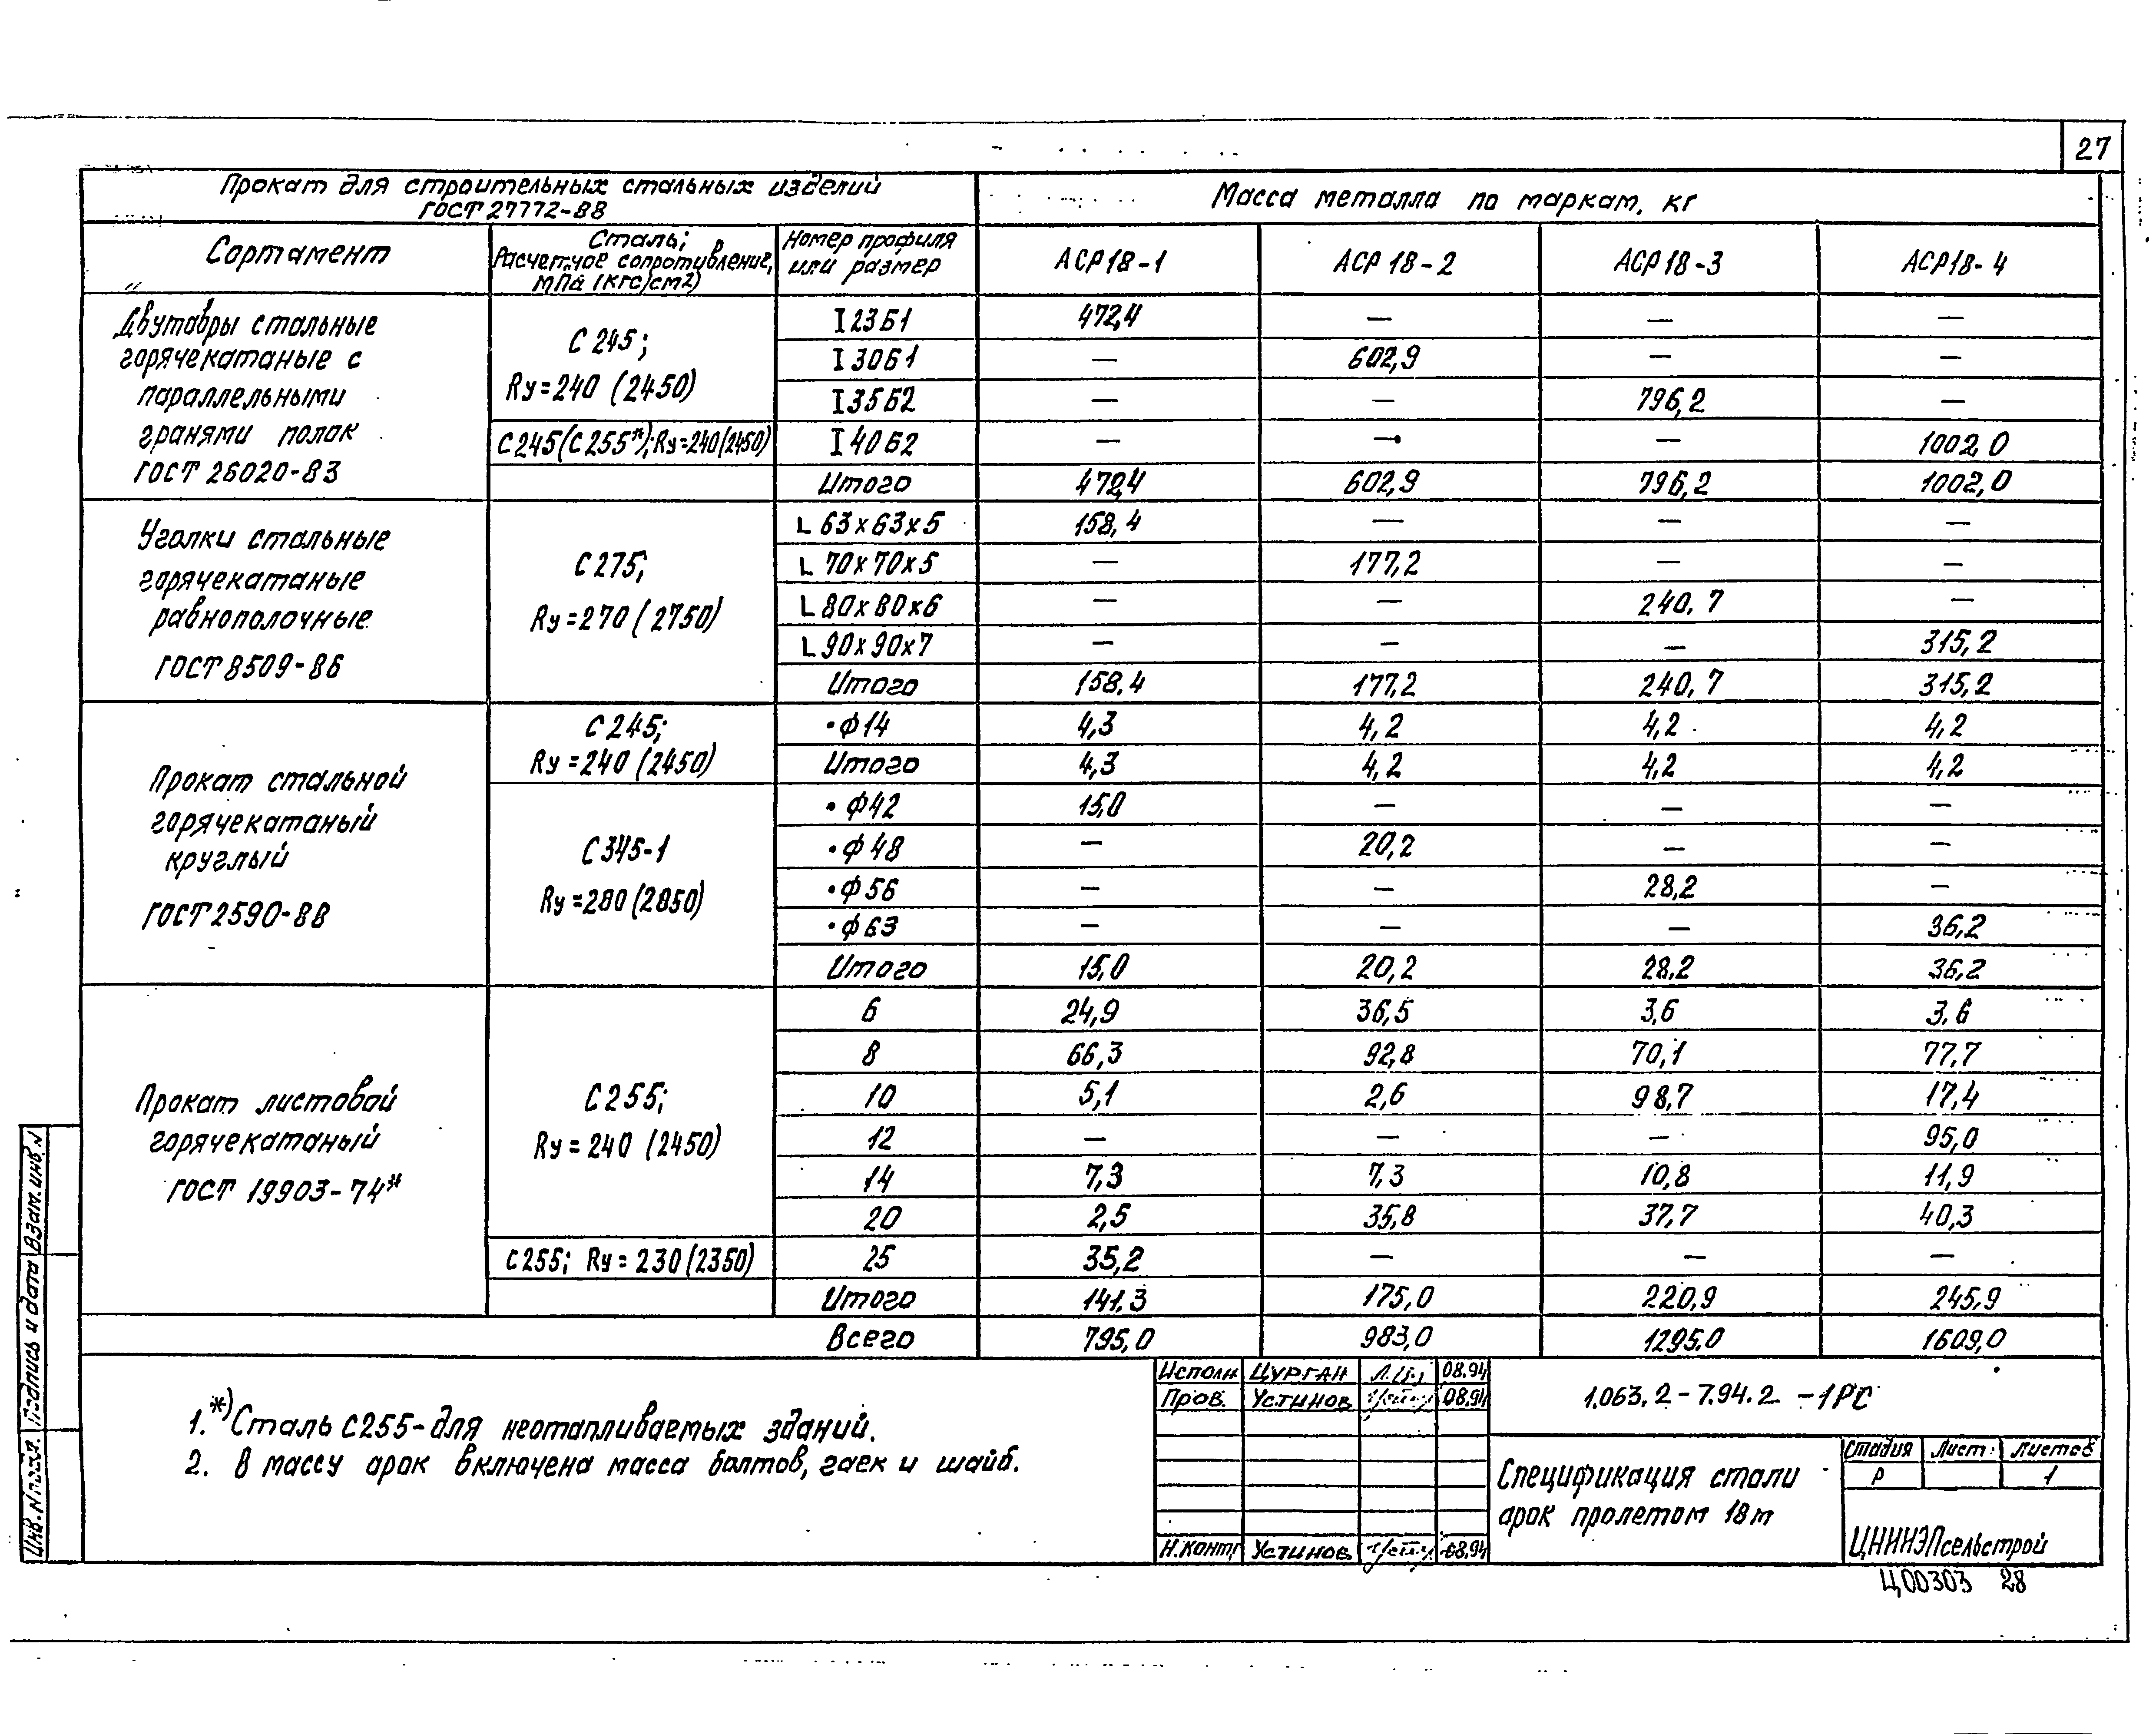 27
Прокат для строительных стальных изделий
ГОСТ 27772-88
Масса металла по маркам, кг
Сортамент
Сталь;
Расчетное сопротивление,
МПа (кгс/см2)
Номер профиля
или размер
АСР18-1
АСР 18-2
АСР18-3
АСР18-4
Двутавры стальные
горячекатаные с
параллельными
гранями полак
ГОСТ 26020-83
С 245;
Rу=240 (2450)
С245(С255*); Rу=240(2450)
I 23Б1 472,4 — — —
I 30Б1 — 602,9 — —
I 35Б2 — — 796,2 —
I 40Б2 — — — 1002,0
Итого 472,4 602,9 796,2 1002,0
Уголки стальные
горячекатаные
равнополочные
ГОСТ 8509-86
С275;
Rу=270 (2750)
L 63х63х5 158,4 — — —
L 70х70х5 — 177,2 — —
L 80х80х6 — — 240,7 —
L 90х90х7 — — — 315,2
Итого 158,4 177,2 240,7 315,2
Прокат стальной
горячекатаный
круглый
ГОСТ 2590-88
С 245;
Rу=240 (2450)
• ф14 4,3 4,2 4,2 4,2
Итого 4,3 4,2 4,2 4,2
С345-1
Rу=280 (2850)
• ф42 15,0 — — —
• ф48 — 20,2 — —
• ф56 — — 28,2 —
• ф63 — — — 36,2
Итого 15,0 20,2 28,2 36,2
Прокат листовой
горячекатаный
ГОСТ 19903-74*
С255;
Rу=240 (2450)
6 24,9 36,5 3,6 3,6
8 66,3 92,8 70,1 77,7
10 5,1 2,6 98,7 17,4
12 — — — 95,0
14 7,3 7,3 10,8 11,9
20 2,5 35,8 37,7 40,3
С255; Rу=230 (2350) 25 35,2 — — —
Итого 141,3 175,0 220,9 245,9
Всего 795,0 983,0 1295,0 1609,0
1.*) Сталь С255-для неотапливаемых зданий.
2. В массу арок включена масса болтов, гаек и шайб.
Исполн Цурган 08.94
Пров. Устинов 08.94
Н.контр Устинов 08.94
1.063.2-7.94.2-1РС
Спецификация стали
арок пролетом 18м
Стадия Лист Листов
Р 1
ЦНИИЭПсельстрой
Ц00303 28
Взам. инв. N
Подпись и дата
Инв. N подл.